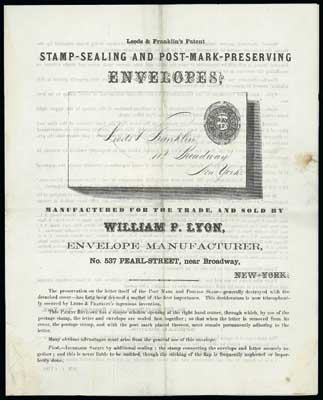 Leeds & Franklin's Patent
STAMP-SEALING AND POST-MARK-PRESERVING
ENVELOPES.
Leeds & Franklin
Broadway
New York
MANUFACTURED FOR THE TRADE, AND SOLD BY
WILLIAM P. LYON,
ENVELOPE MANUFACTURER,
No. 537 PEARL-STREET, near Broadway,
NEW-YORK.
The preservation on the letter itself of the Post Mark and Postage Stamp—generally destroyed with the
detached cover—has long been deemed a matter of the first importance. This desideratum is now triumphant-
ly secured by Leeds & Franklin's ingenious invention.
This Patent Envelope has a simple window opening at the right hand corner, through which, by use of the
postage stamp, the letter and envelope are sealed fast together; so that when the letter is removed from its
cover, the postage stamp, and with the post mark placed thereon, must remain permanently adhering to the
letter.
Many obvious advantages must arise from the general use of this envelope.
First.—Increased Safety by additional sealing: the stamp connecting the envelope and letter securely to-
gether; and this is never liable to be omitted, though the sticking of the flap is frequently neglected or imper-
fectly done.